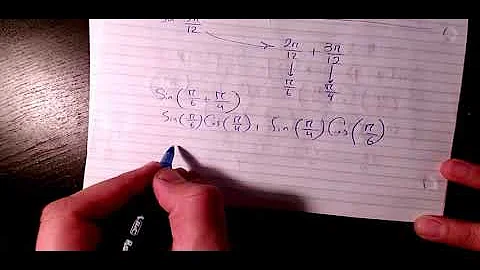 Sin 5π/12
→ 2π/12 + 3π/12
↓ ↓
π/6 π/4
Sin(π/6 + π/4)
Sin(π/6) Cos(π/4) + Sin(π/4) Cos(π/6)